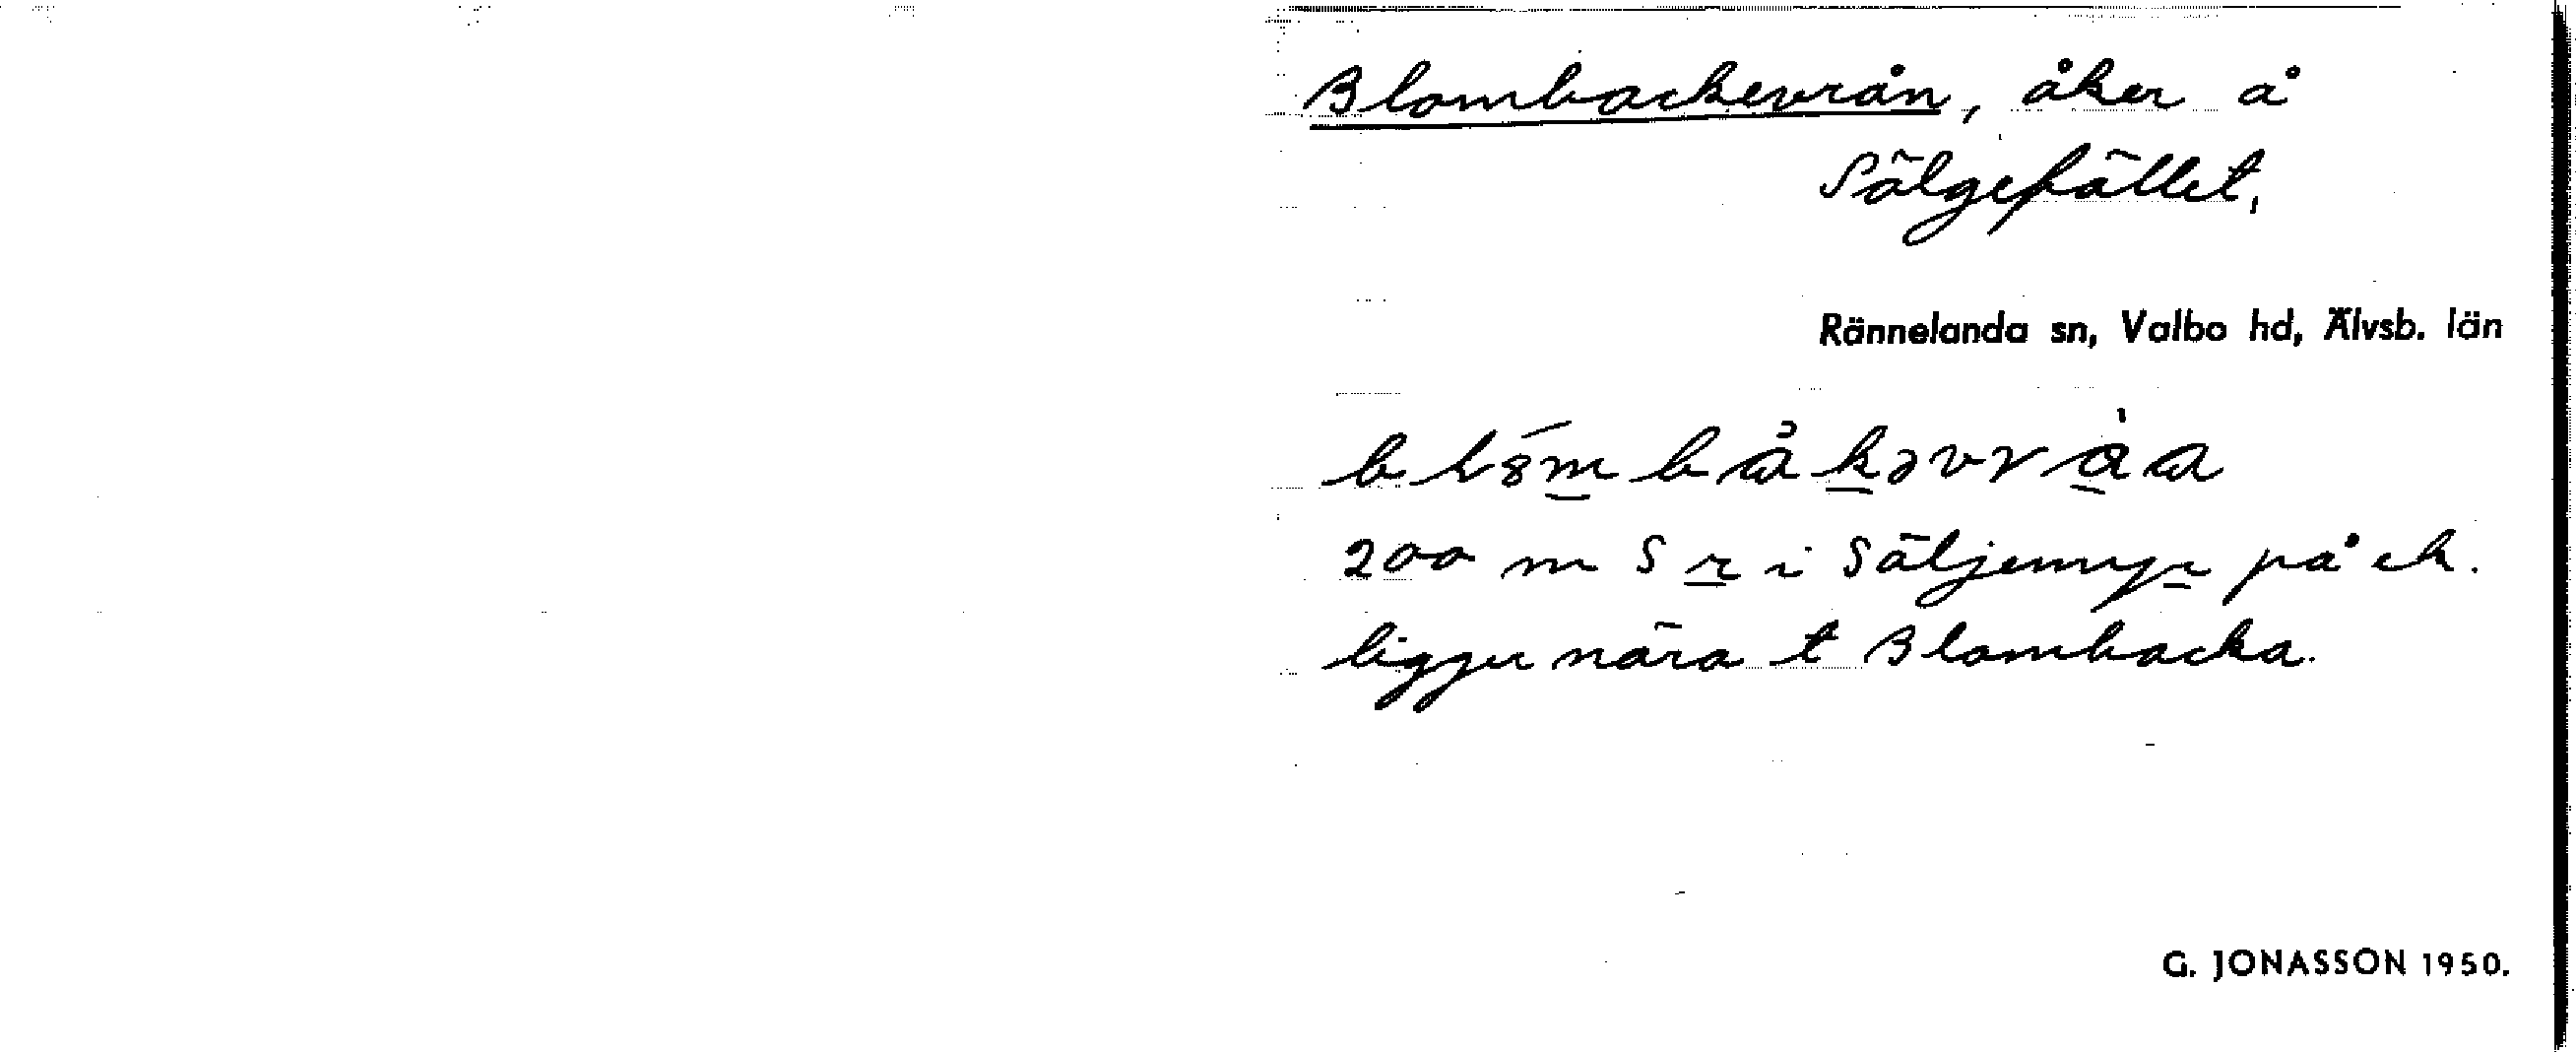 Blombackevrån, åker å
Sälgefället,
Rännelanda sn, Valbo hd, Älvsb. län
200 m S r i Säljemyr på ek.
ligger nära t Blombacka.
G. JONASSON 1950.